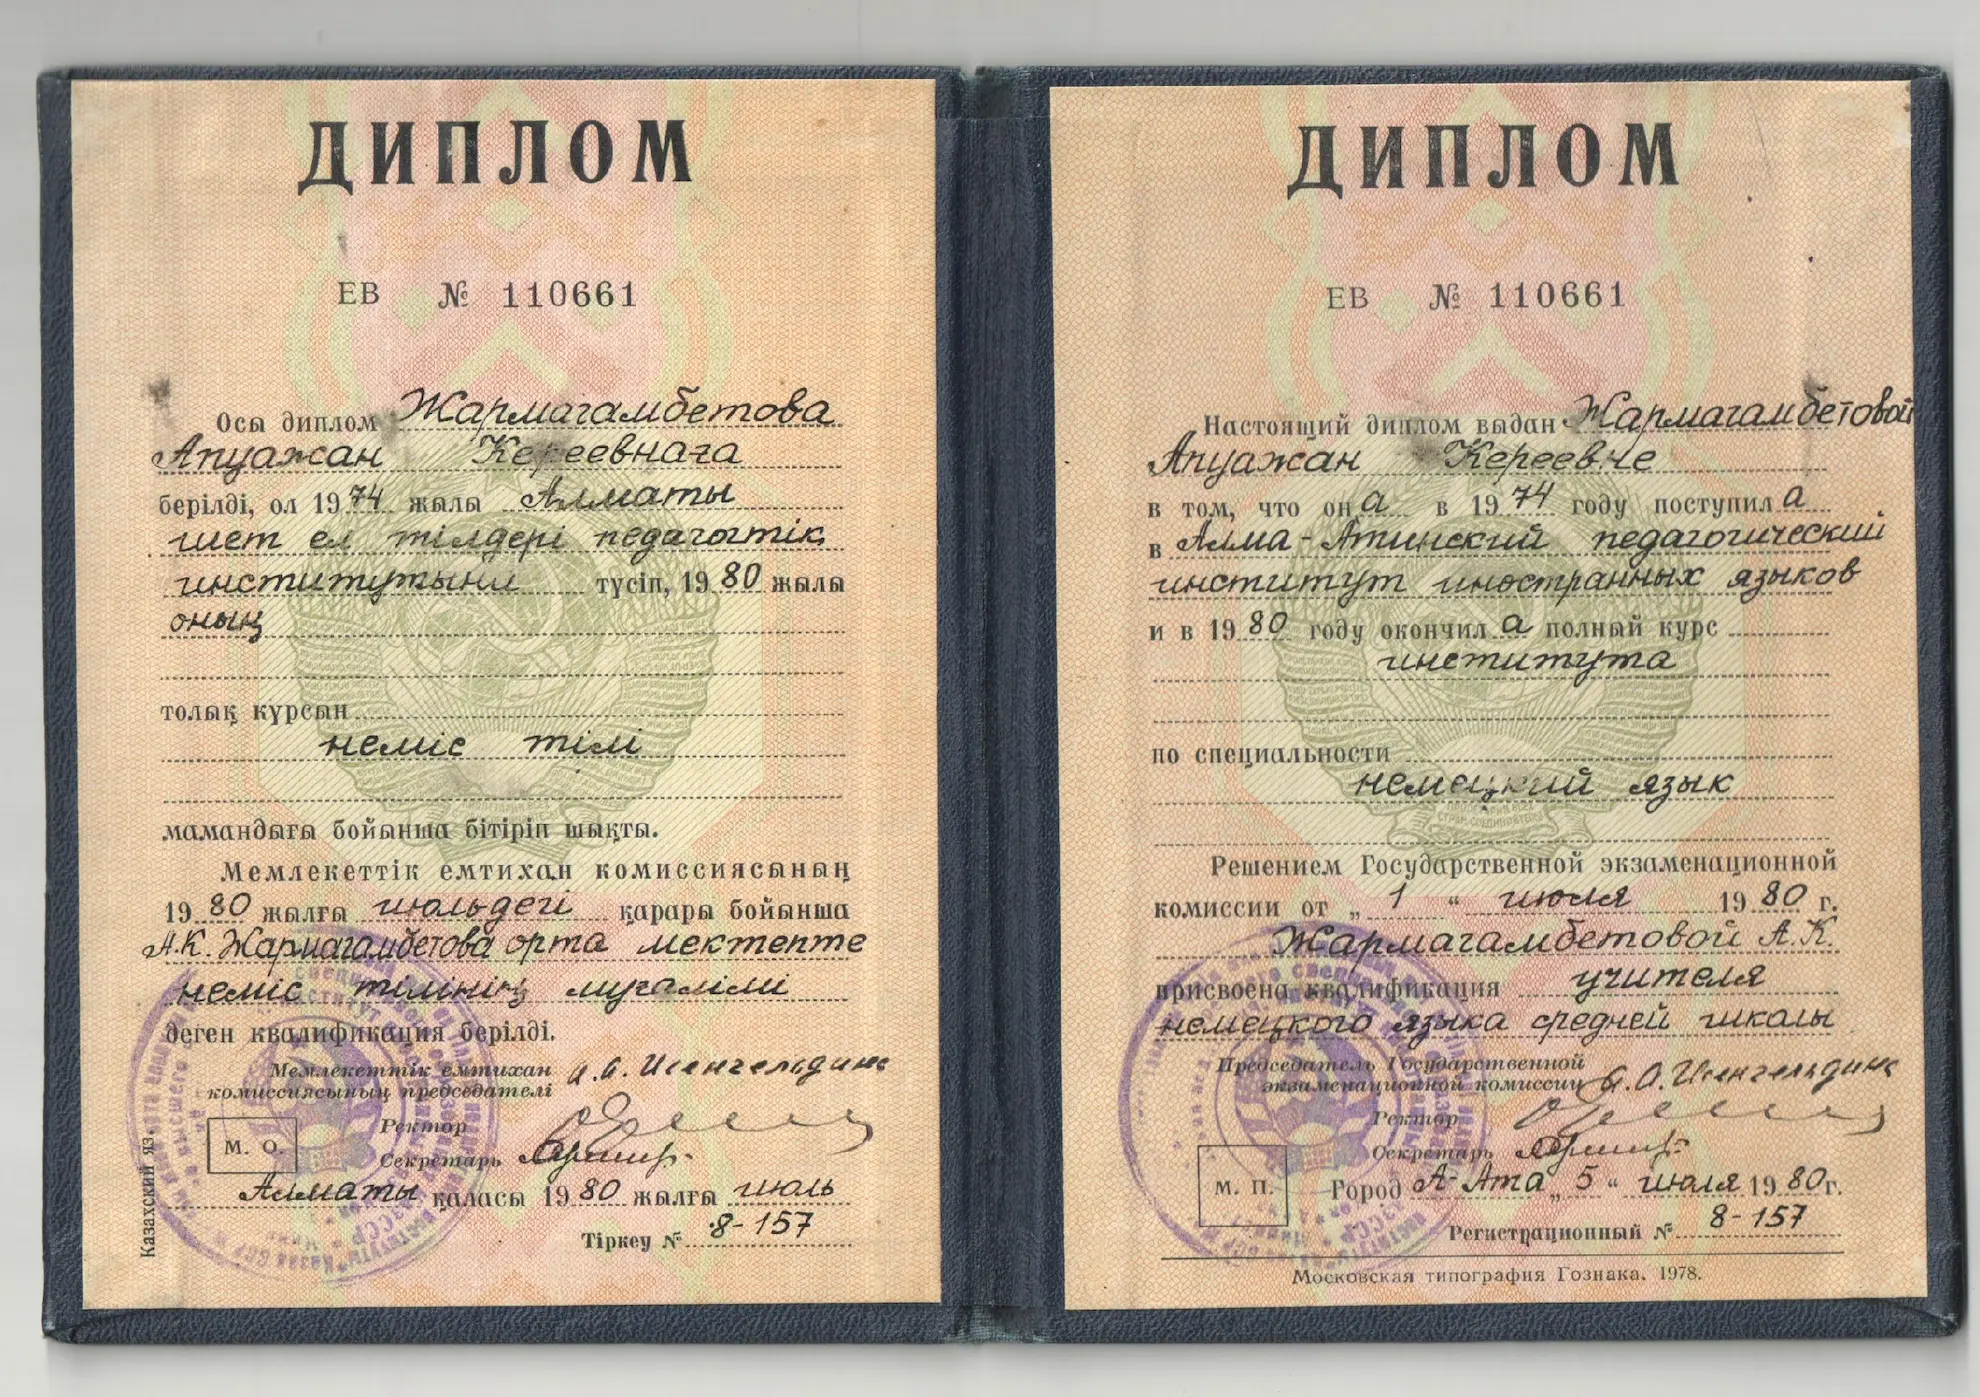 ДИПЛОМ
ЕВ № 110661
Осы диплом Жармагамбетова
Апуажан Кереевнаға
берілді, ол 1974 жылы Алматы
шет ел тілдері педагогтік
институтына түсіп, 1980 жылы
оның
толық курсын
неміс тілі
мамандығы бойынша бітіріп шықты.
Мемлекеттік емтихан комиссиясының
1980 жылғы июльдегі қарары бойынша
А.К. Жармагамбетова орта мектепте
неміс тілінің мұғалімі
деген квалификация берілді.
Мемлекеттік емтихан
комиссиясының председателі
Ректор
М. О.
Секретарь
Алматы қаласы 1980 жылғы июль
Тіркеу № 8-157
Казахский яз.
ДИПЛОМ
ЕВ № 110661
Настоящий диплом выдан Жармагамбетовой
Апуажан Кереевне
в том, что она в 1974 году поступила
в Алма-Атинский педагогический
институт иностранных языков
и в 1980 году окончила полный курс
института
по специальности
немецкий язык
Решением Государственной экзаменационной
комиссии от „1“ июля 1980 г.
Жармагамбетовой А.К.
присвоена квалификация учителя
немецкого языка средней школы
Председатель Государственной
экзаменационной комиссии
Ректор
Секретарь
М. П.
Город А-Ата „5“ июля 1980г.
Регистрационный № 8-157
Московская типография Гознака. 1978.